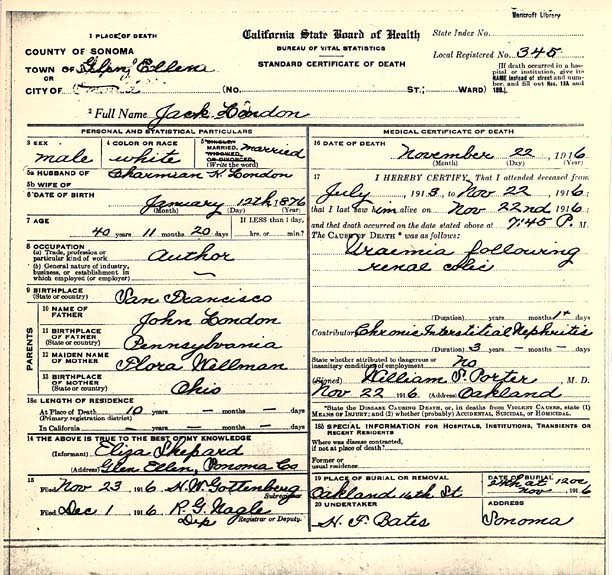 Bancroft Library
1 PLACE OF DEATH
California State Board of Health
State Index No.
COUNTY OF SONOMA
BUREAU OF VITAL STATISTICS
Local Registered No. 345
TOWN OF Glen Ellen
STANDARD CERTIFICATE OF DEATH
OR
CITY OF
(No. ST.; WARD)
[If death occurred in a hospital or institution, give its NAME instead of street and number, and fill out Nos. 18A and 18B.]
2 Full Name Jack London
PERSONAL AND STATISTICAL PARTICULARS
3 SEX male
4 COLOR OR RACE white
5 SINGLE, MARRIED, WIDOWED, OR DIVORCED (Write the word) married
5a HUSBAND OF Charmian K. London
5b WIFE OF
6 DATE OF BIRTH
January 12th 1876
(Month) (Day) (Year)
7 AGE
If LESS than 1 day,
40 years 11 months 20 days
hrs. or min.?
8 OCCUPATION
(a) Trade, profession or particular kind of work author
(b) General nature of industry, business, or establishment in which employed (or employer) ~
9 BIRTHPLACE
(State or country) San Francisco
PARENTS
10 NAME OF FATHER John London
11 BIRTHPLACE OF FATHER (State or country) Pennsylvania
12 MAIDEN NAME OF MOTHER Flora Wellman
13 BIRTHPLACE OF MOTHER (State or country) Ohio
13a LENGTH OF RESIDENCE
At Place of Death 10 years — months — days
(Primary registration district)
In California — years — months — days
14 THE ABOVE IS TRUE TO THE BEST OF MY KNOWLEDGE
(Informant) Eliza Shepard
(Address) Glen Ellen, Sonoma Co
15
Filed Nov 23 1916 H.W. Gottenberg
Subregistrar
Filed Dec 1 1916 R. G. Nagle
Dep Registrar or Deputy.
MEDICAL CERTIFICATE OF DEATH
16 DATE OF DEATH
November 22 1916
(Month) (Day) (Year)
17 I HEREBY CERTIFY, That I attended deceased from
July 1913 to Nov 22 1916;
that I last saw him alive on Nov 22nd 1916;
and that death occurred on the date stated above at 7:45 P. M.
The CAUSE OF DEATH * was as follows:
Uraemia following
renal colic
(Duration) years months 1+ days
Contributory Chronic Interstitial Nephritis
(Duration) 3 years — months — days
State whether attributed to dangerous or insanitary conditions of employment No
(Signed) William P. Porter M. D.
Nov 22 1916 (Address) Oakland
*State the DISEASE CAUSING DEATH, or, in deaths from VIOLENT CAUSES, state (1) MEANS OF INJURY; and (2) whether (probably) ACCIDENTAL, SUICIDAL, or HOMICIDAL.
18b SPECIAL INFORMATION FOR HOSPITALS, INSTITUTIONS, TRANSIENTS OR RECENT RESIDENTS
Where was disease contracted, if not at place of death?
Former or usual residence
19 PLACE OF BURIAL OR REMOVAL
Oakland 16th St
DATE OF BURIAL
24th at 12 oc
Nov 1916
20 UNDERTAKER
H. F. Bates
ADDRESS
Sonoma